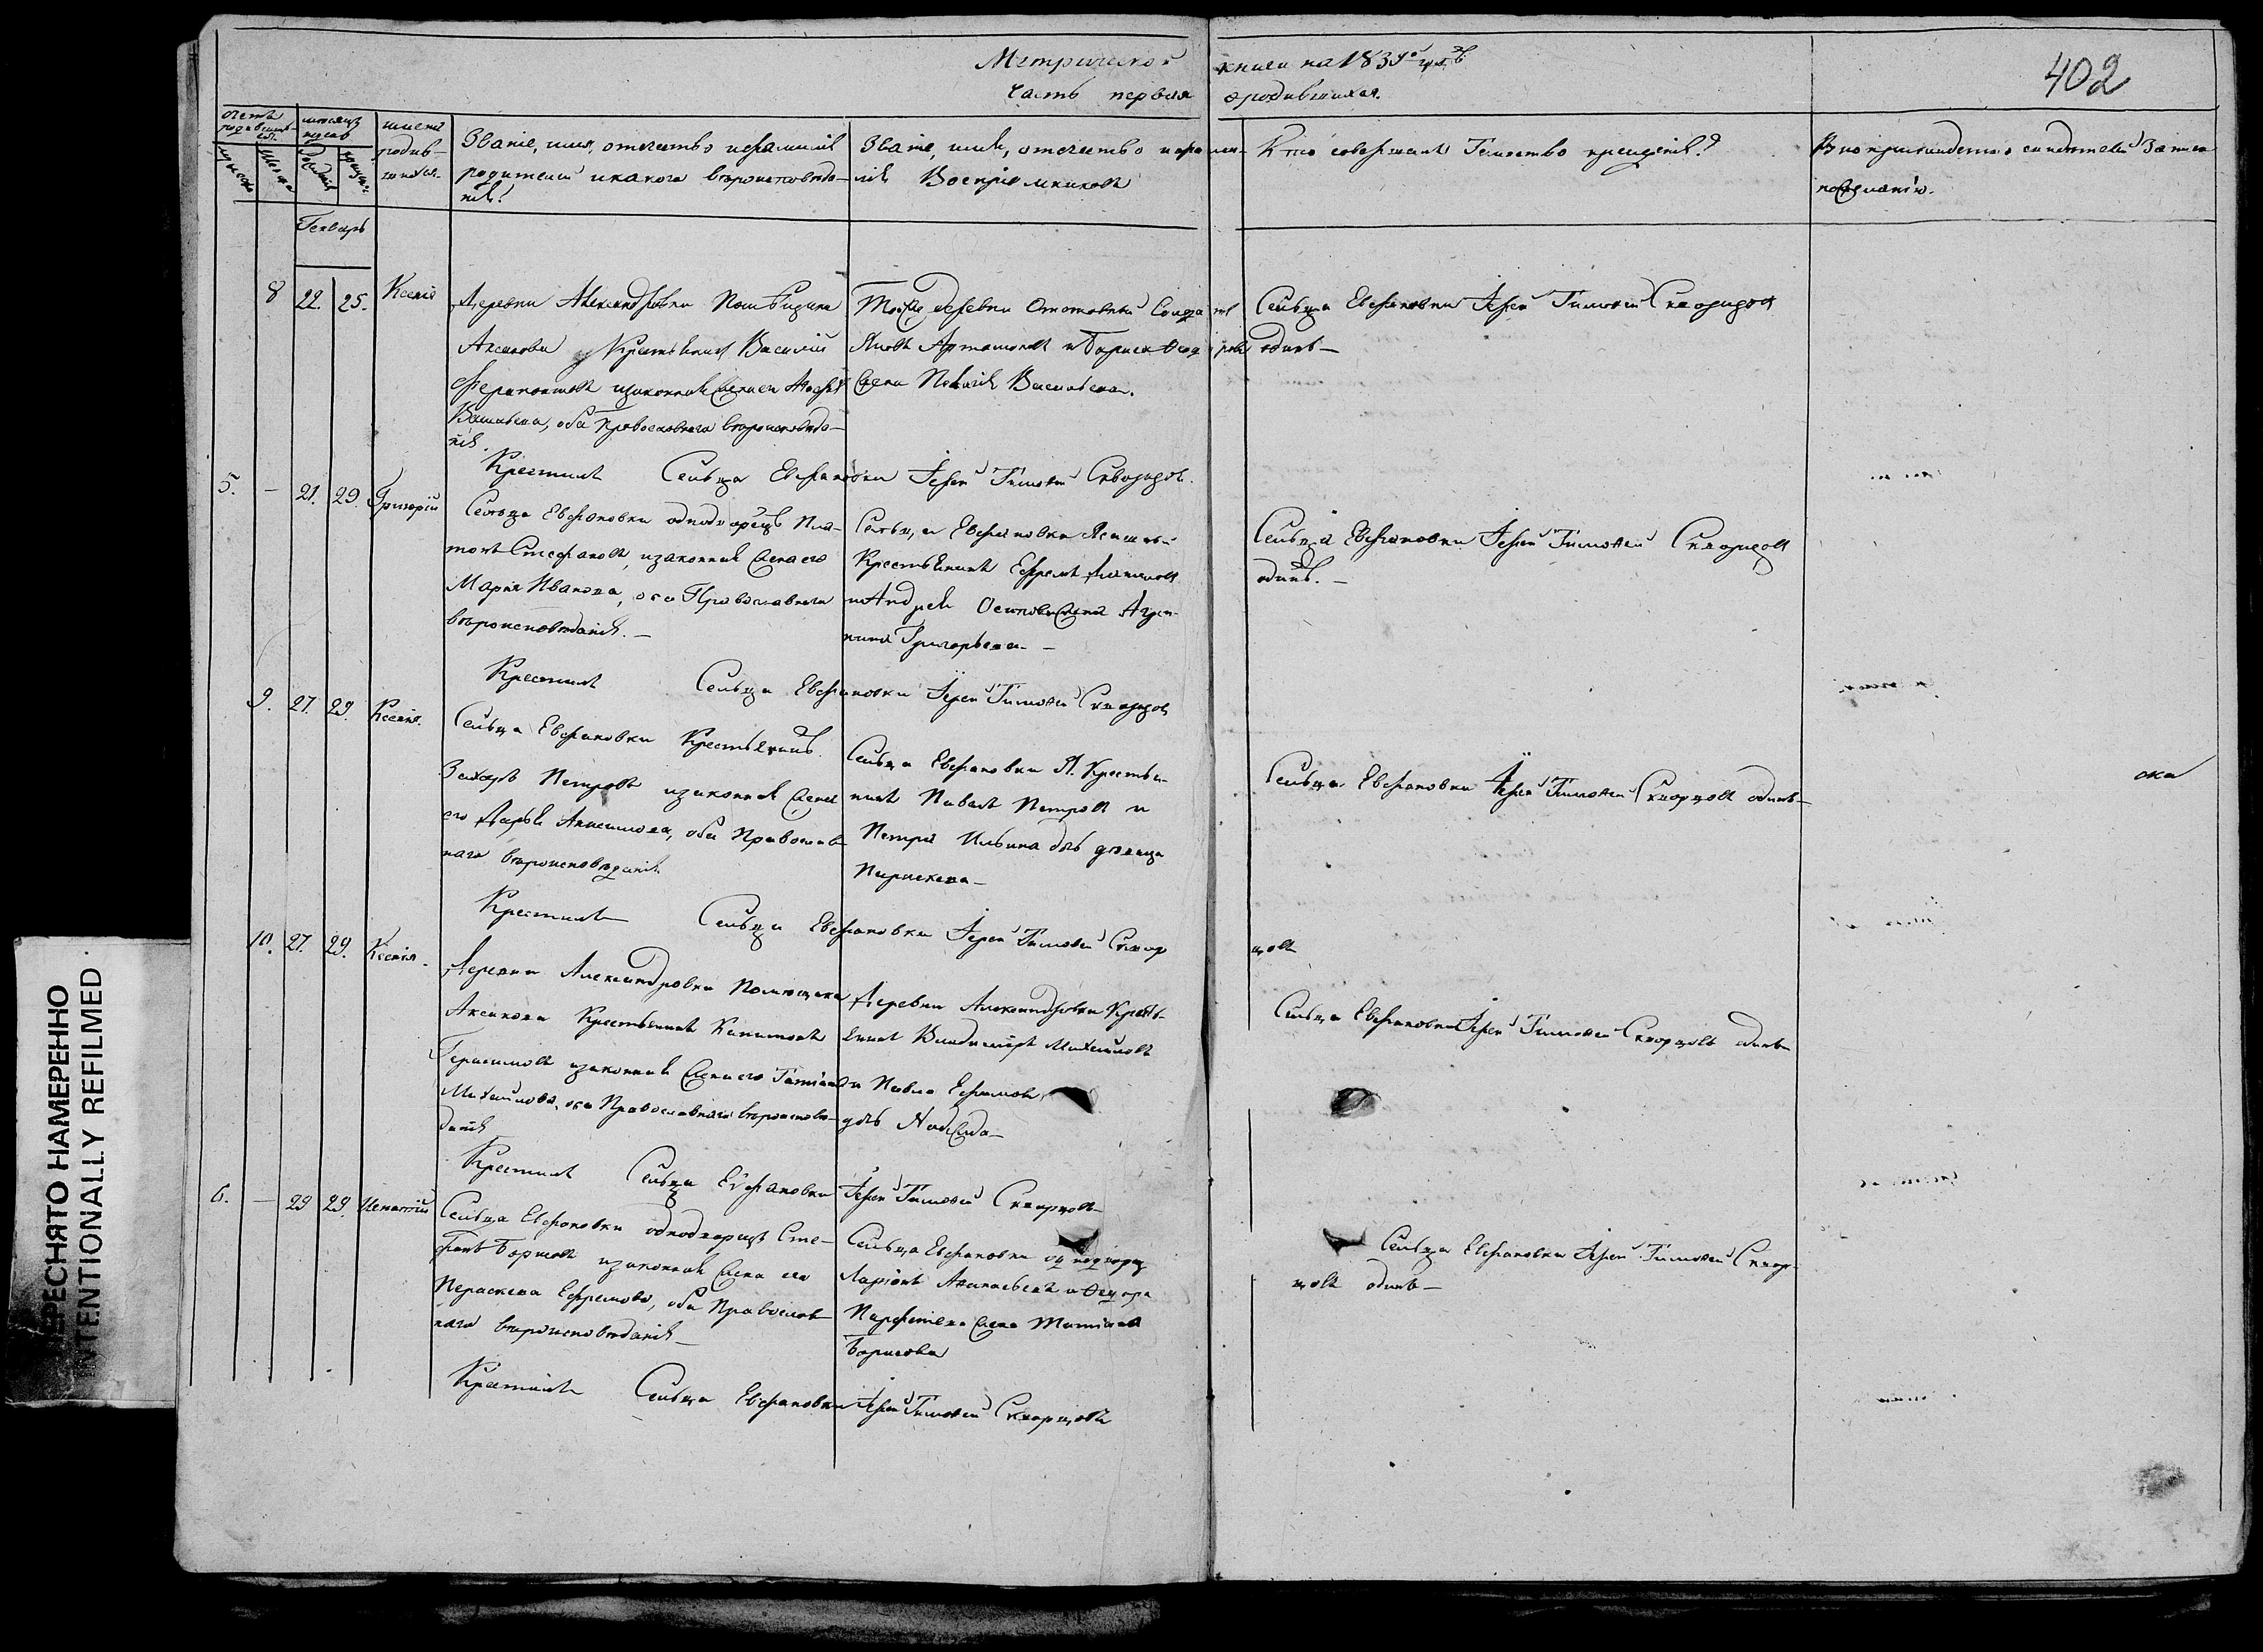 Метрической книги на 1839 годъ
402
Часть первая о родившихся.
Счетъ родившихся
мужеска
женска
месяцъ и число
рожденія
крещен:
имена родив-
шихся.
Званіе, имя, отечество и фамилія
родителей и какого вѣроисповѣда-
нія?
Званіе, имя, отечество и фамил-
ія Воспріемниковъ
Кто совершалъ Таинство крещенія?
Рукоприкладство свидѣтелей записи
по желанію.
Генварь
8 22. 25. Ксенія
Деревни Александровки Помѣщика
Аксакова Крестьянинъ Василій
законная жена его
Васильева, оба Православнаго вѣроисповѣда-
нія.
Той же деревни Отставный Солдатъ
Яковъ Артамоновъ и Бориса Ѳедорова
жена Васильева.
Сельца Евфановки Іерей Тимоѳей Скворцовъ
одинъ—
Крестилъ Сельца Евфановки Іерей Тимоѳей Скворцовъ.
5. — 21. 29. Григорій
Сельца Евфановки однодворецъ Пла-
тонъ Стефановъ, и законная жена его
Марья Иванова, оба Православнаго
вѣроисповѣданія.—
Сельца Евфановки
Крестьянинъ Ефремъ
и Андрея жена Агри-
пина Григорьева—
Сельца Евфановки Іерей Тимоѳей Скворцовъ
одинъ.—
Крестилъ Сельца Евфановки Іерей Тимоѳей Скворцовъ
9. 27. 29. Ксенія.
Сельца Евфановки Крестьянинъ
Захаръ Петровъ и законная жена
его Дарья Анисимова, оба Православ-
наго вѣроисповѣданія
Сельца Евфановки Я. Крестья-
нинъ Павелъ Петровъ и
Петра Ильина дочь дѣвица
Параскева—
Сельца Евфановки Іерей Тимоѳей Скворцовъ одинъ—
Крестилъ Сельца Евфановки Іерей Тимоѳей Сквор
цовъ
10. 27. 29. Ксенія.
Деревни Александровки Помещика
Аксакова Крестьянинъ Капитонъ
Герасимовъ и законная жена его Татіана
Михайлова, оба Православнаго вѣроисповѣ-
данія
Деревни Александровки Кресть-
янинъ Владимиръ Михайловъ
и Павла Ефимова
дочь Надежда—
Сельца Евфановки Іерей Тимоѳей Скворцовъ одинъ
Крестилъ Сельца Евфановки Іерей Тимоѳей Скворцовъ
6. — 29 29. Игнатій
Сельца Евфановки однодворецъ Сте-
фанъ Борисовъ и законная жена его
Параскева Ефремова, оба Православ-
наго вѣроисповѣданія—
Сельца Евфановки однодворц
Ларіонъ Афанасьевъ и Ѳедора
жена Татіана
Борисова
Сельца Евфановки Іерей Тимоѳей Сквор-
цовъ одинъ—
Крестилъ Сельца Евфановки Іерей Тимоѳей Скворцовъ
ПЕРЕСНЯТО НАМЕРЕННО
INTENTIONALLY REFILMED.